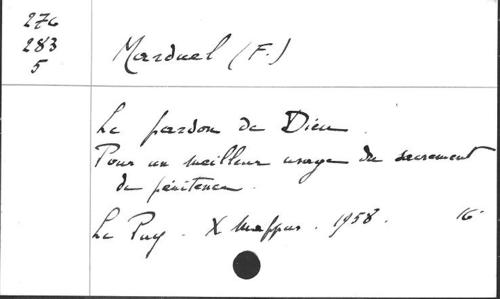 276
283
5
Marduel (F.)
Le pardon de Dieu.
Pour un meilleur usage du sacrement
de pénitence.
Le Puy. X Mappus. 1958. 16